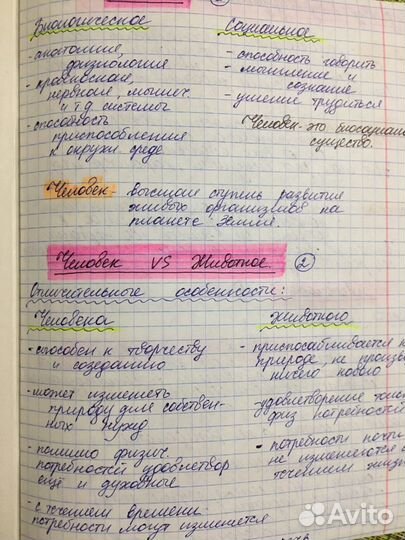 Биологическое
- анатомия,
физиология
- кровеносная,
нервная, мышеч.
и т.д системы
- способность
приспособления
к окруж. среде
Социальное
- способность говорить
- мышление и
сознание
- умение трудиться
Человек - это биосоциал
существо.
Человек - высшая ступень развития
живых организмов на
планете Земля.
Человек VS Животное 2
Отличительные особенности:
Человека
- способен к творчеству
и созеданию
- может изменять
природу для собствен-
ных нужд
- помимо физич.
потребностей удовлетвор
ещё и духовные
- с течением времени
потребности могут изменятся
Животного
- приспосабливается к
природе, не произв
ничего нового
- удовлетворение толь
физ потребностей
- потребности почти
не изменяются с
течением жизн
Avito